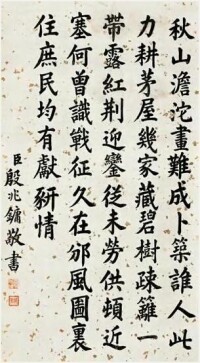 秋山澹沱畫難成卜築誰人此
力耕茅屋幾家藏碧樹疎籬一
帶露紅荆迎鑾從未勞供頓近
塞何曾識戰征久在邠風圖裏
住庶民均有獻豜情
臣殷兆鏞敬書